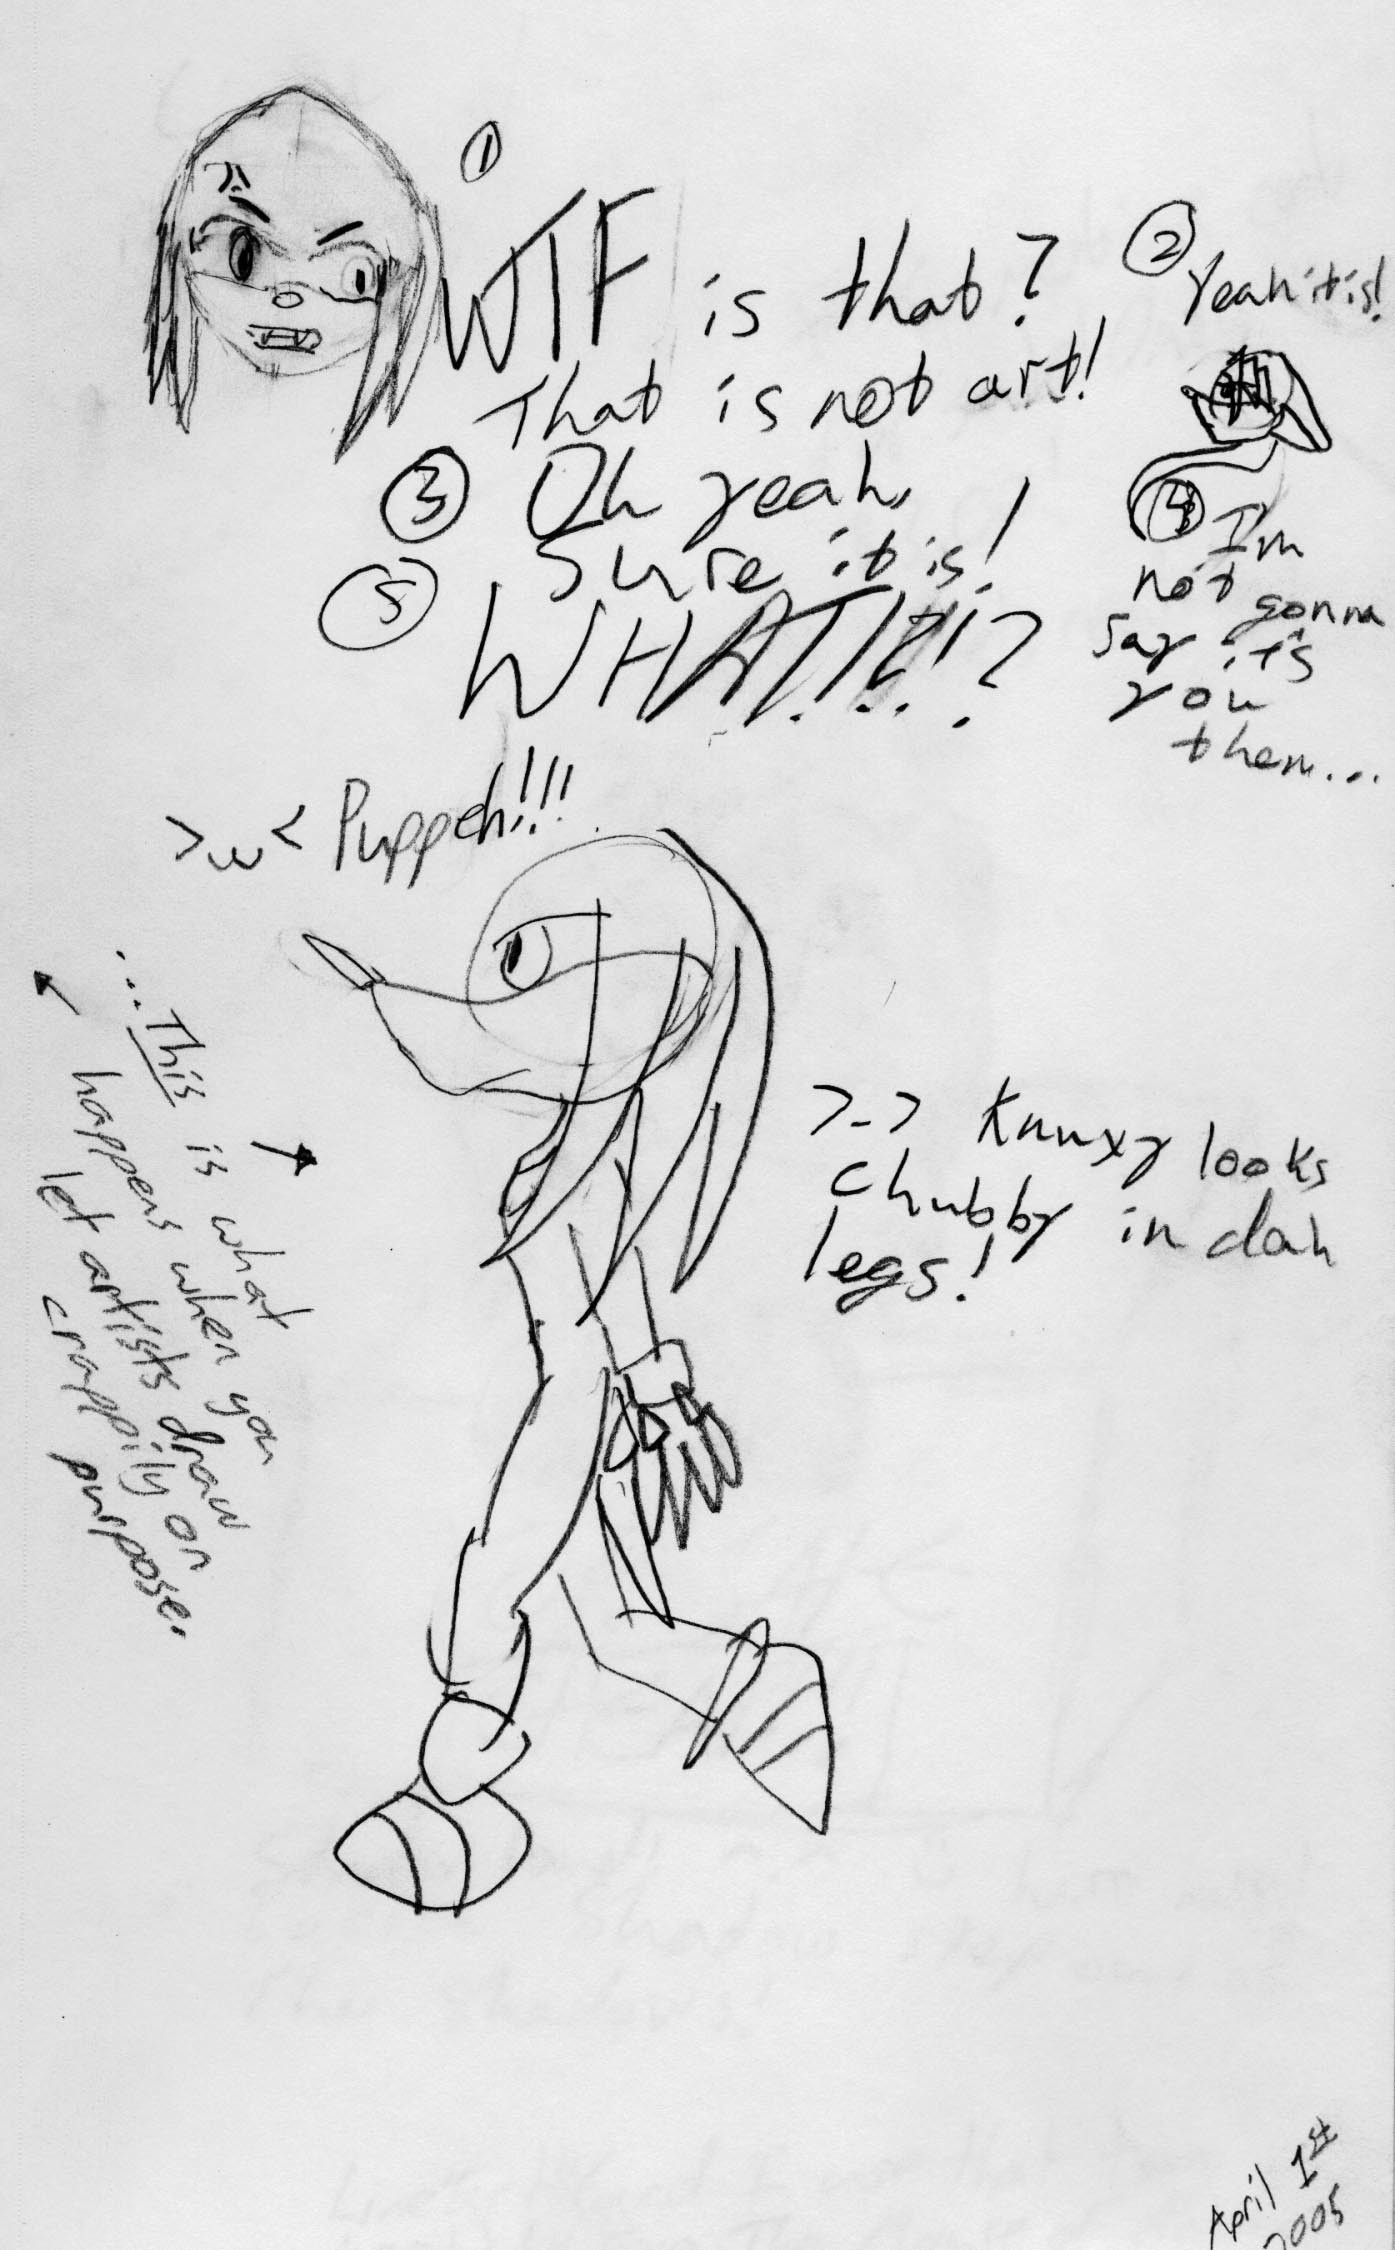 ①
WTF is that?
That is not art!
②
Yeah it is!
③ Oh yeah,
sure it is!
④ I'm
not gonna
say it's
you
them...
⑤ WHAT!?!?!?
>w< Puppeh!!!
...This is what
happens when you
let artists draw
crappily on
purpose.
>-> Knuxy looks
chubby in dah
legs!
April 1st
2005